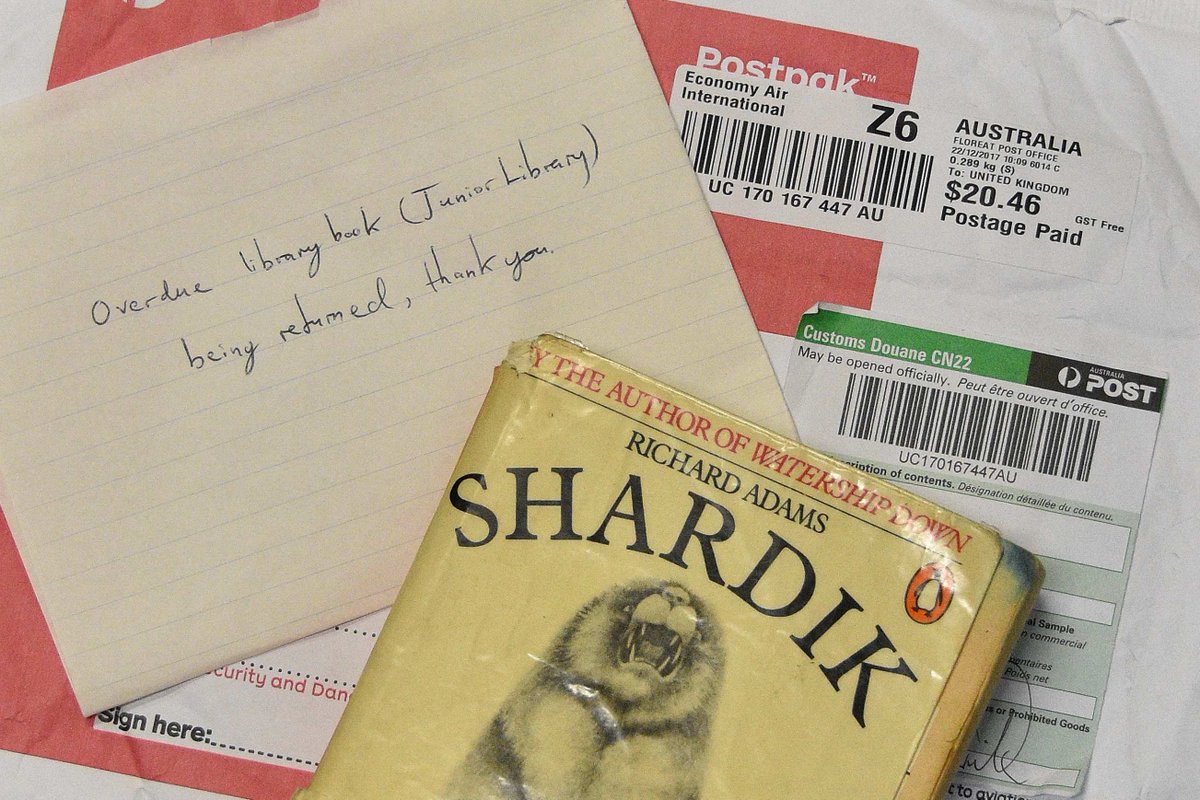 Overdue library book (Junior Library)
being returned, thank you.
Postpak™
Economy Air
International
Z6
UC 170 167 447 AU
AUSTRALIA
FLOREAT POST OFFICE
22/12/2017 10:09 6014 C
0.289 kg (S)
To: UNITED KINGDOM
$20.46
GST Free
Postage Paid
Customs Douane CN22
May be opened officially. Peut être ouvert d'office.
AUSTRALIA
POST
UC170167447AU
of contents. Désignation détaillée du contenu.
Y THE AUTHOR OF WATERSHIP DOWN
RICHARD ADAMS
SHARDIK
al Sample
commercial
Poids net
or Prohibited Goods
to
curity and Dan
Sign here: